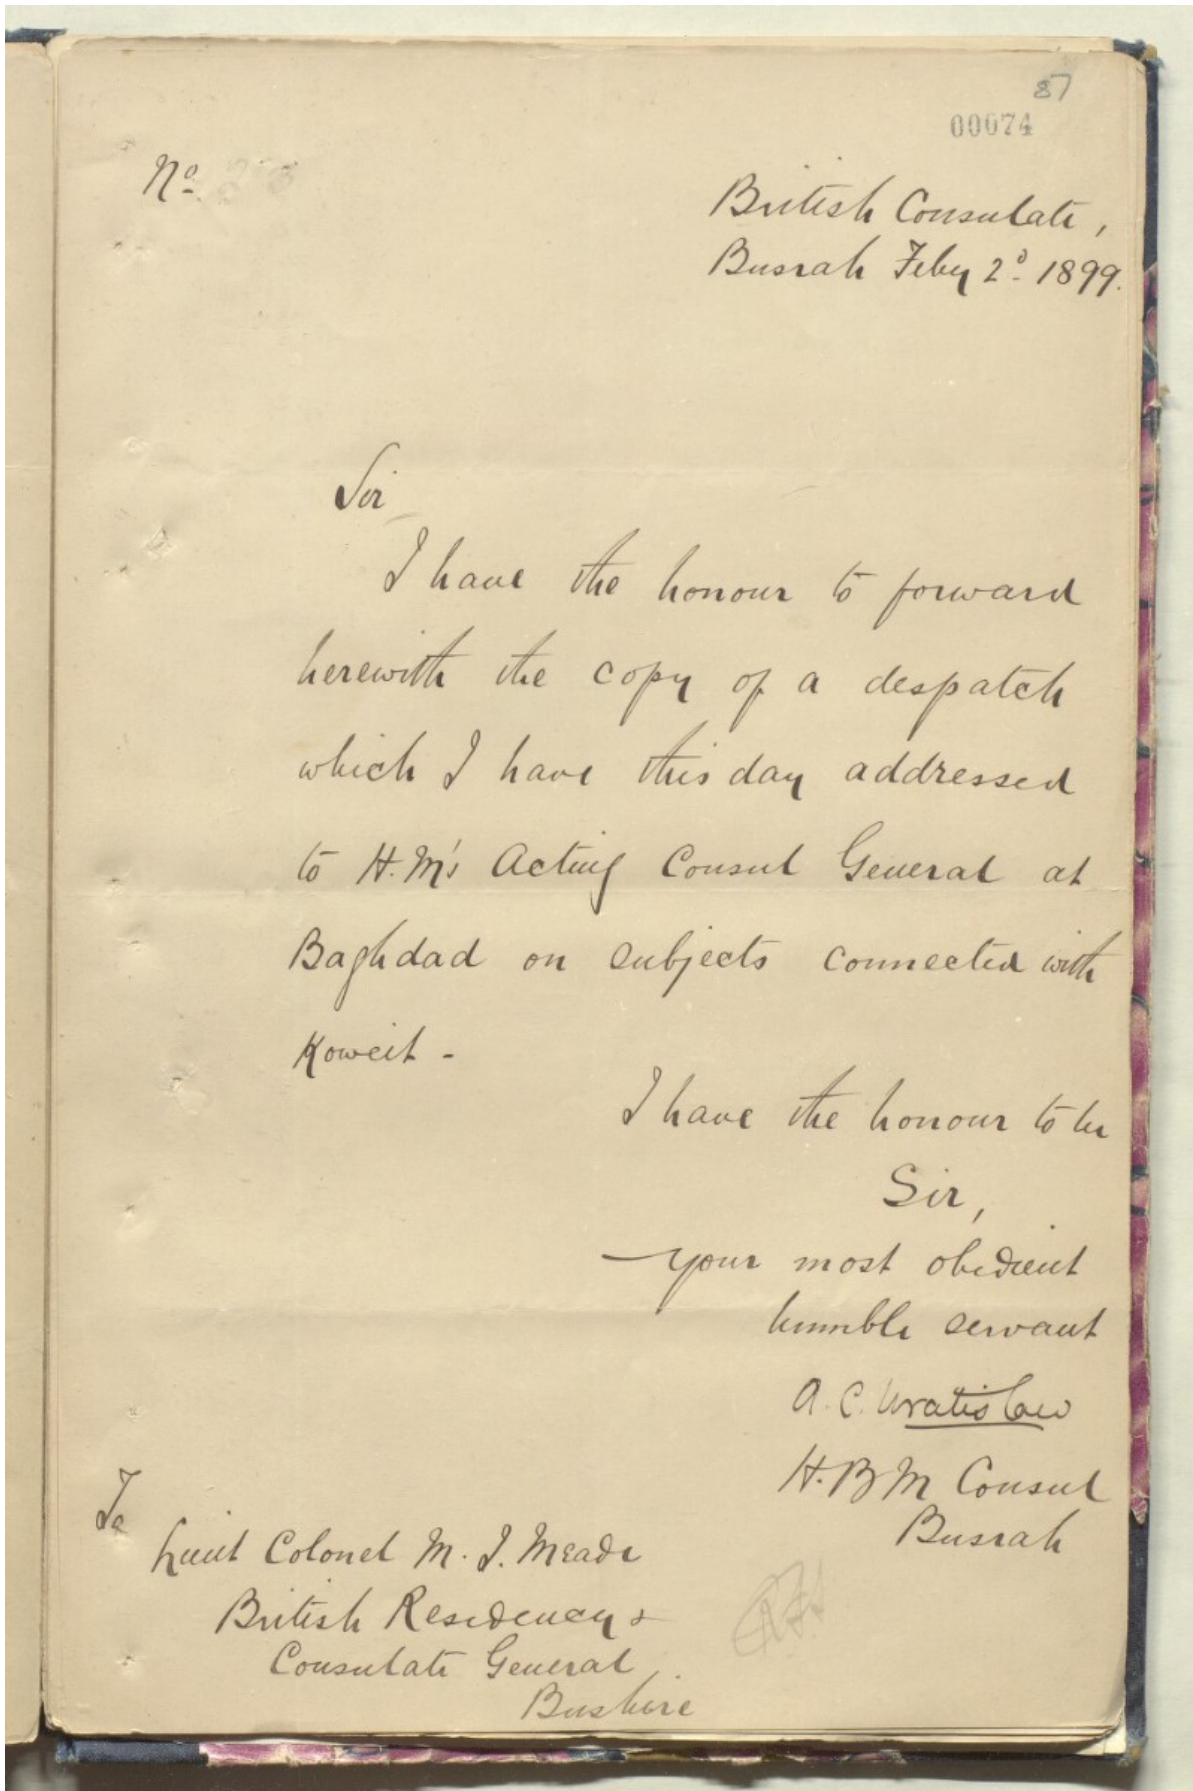 87
00074
No.
British Consulate,
Busrah Feby 2d. 1899.
Sir
I have the honour to forward
herewith the copy of a despatch
which I have this day addressed
to H.M's Acting Consul General at
Baghdad on subjects connected with
Koweit -
I have the honour to be
Sir,
your most obedient
humble servant
A. C. Wratislaw
H. B M Consul
Busrah
To
Lieut Colonel M. J. Meade
British Residency &
Consulate General
Bushire